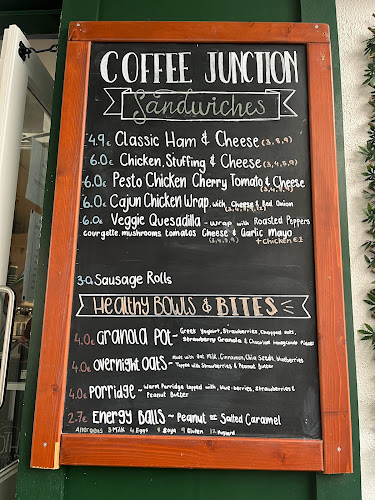 COFFEE JUNCTION
Sandwiches
4.9€ Classic Ham & Cheese (3,8,9)
6.0€ Chicken, Stuffing & Cheese (3,4,8,9)
6.0€ Pesto Chicken Cherry Tomato & Cheese
(3,4,8,9)
6.0€ Cajun Chicken Wrap with Cheese & Red Onion
6.0€ Veggie Quesadilla - wrap with Roasted Peppers
courgette, mushrooms, tomatos Cheese & Garlic Mayo
(3,4,8,9) + Chicken €1
3.0 Sausage Rolls
HEALTHY BOWLS & BITES
4.0€ GRANOLA POT - Greek Yogurt, Strawberries, Chopped nuts,
Strawberry Granola & Chocolate Honeycomb Pieces
4.0€ OVERNIGHT OATS - Made with Oat Milk, Cinnamon, Chia Seeds, blueberries
- Topped with Strawberries & Peanut Butter
4.0€ PORRIDGE - Warm Porridge topped with, blue-berries, Strawberries &
Peanut Butter
2.7€ ENERGY BALLS ~ Peanut or Salted Caramel
Allergens 3 Milk 4 Eggs 8 Soya 9 Gluten 12 Mustard